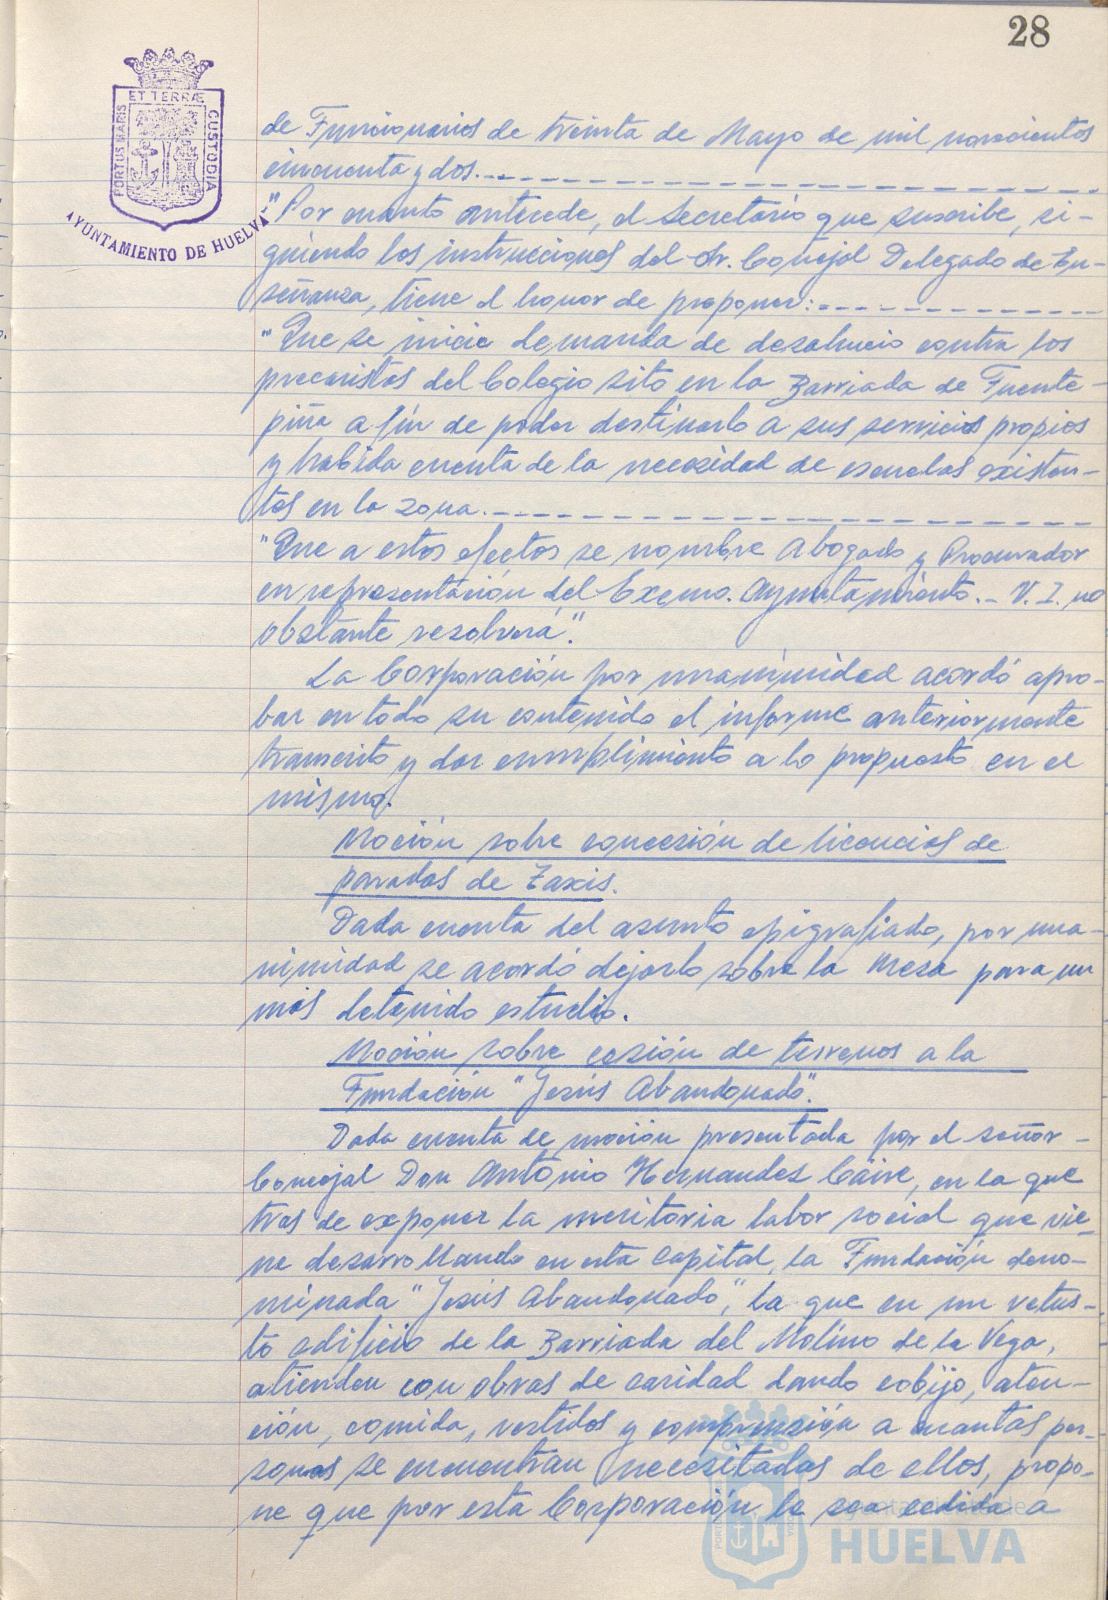 28
ET TERRÆ
PORTUS MARIS
CUSTODIA
AYUNTAMIENTO DE HUELVA
de Funcionarios de treinta de Mayo de mil novecientos
cincuenta y dos.
"Por cuanto antecede, el Secretario que suscribe, si-
guiendo las instrucciones del Sr. Concejal Delegado de En-
señanza, tiene el honor de proponer:
"Que se inicie demanda de desahucio contra los
precaristas del Colegio sito en la Barriada de Fuente-
piña a fin de poder destinarlo a sus servicios propios
y habida cuenta de la necesidad de escuelas existen-
tes en la zona.
"Que a estos efectos se nombre Abogado y Procurador
en representación del Excmo. Ayuntamiento.- V. I. no
obstante resolverá".
La Corporación por unanimidad acordó apro-
bar en todo su contenido el informe anteriormente
transcrito y dar cumplimiento a lo propuesto en el
mismo.
Moción sobre concesión de licencias de
paradas de Taxis.
Dada cuenta del asunto epigrafiado, por una-
nimidad se acordó dejarlo sobre la Mesa para un
más detenido estudio.
Moción sobre cesión de terrenos a la
Fundación "Jesús Abandonado".
Dada cuenta de moción presentada por el señor-
Concejal Don Antonio Hernandez Caire, en la que
tras de exponer la meritoria labor social que vie-
ne desarrollando en esta capital, la Fundación deno-
minada "Jesús Abandonado", la que en un vetus-
to edificio de la Barriada del Molino de la Vega,
atienden con obras de caridad dando cobijo, aten-
ción, comida, vestidos y comprensión a cuantas per-
sonas se encuentran necesitadas de ellos, propo-
ne que por esta Corporación le sea cedida a
HUELVA